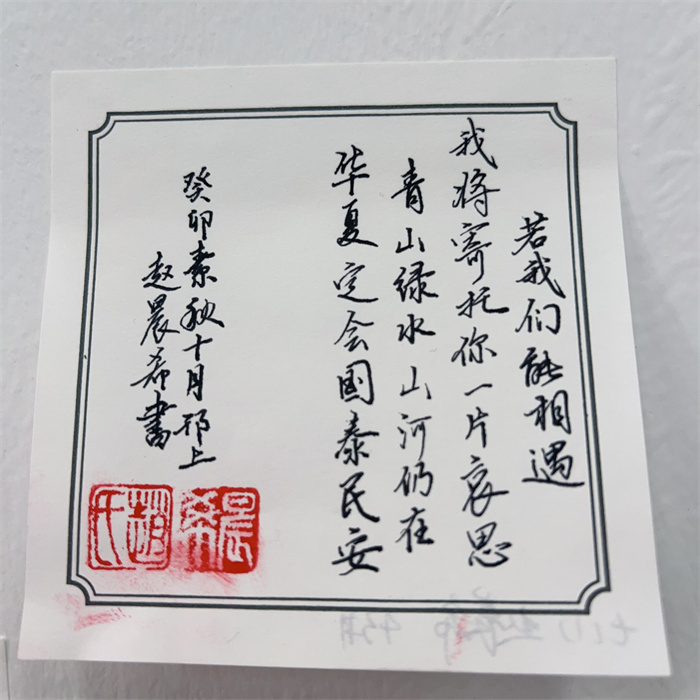 若我们能相遇
我将寄托你一片哀思
青山绿水山河仍在
华夏定会国泰民安
癸卯素秋十月邗上
赵晨希书
晨希
趙氏